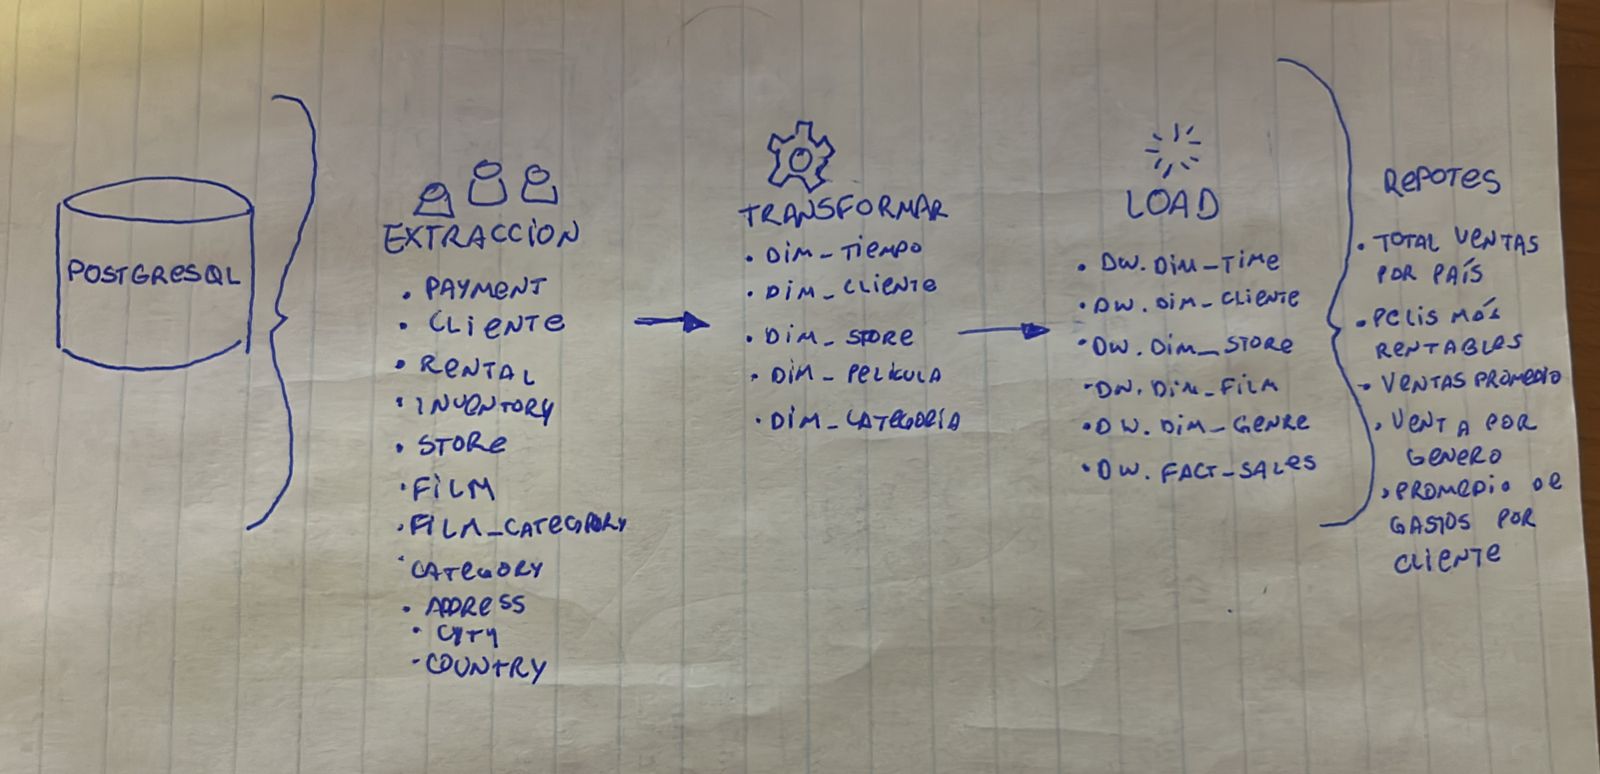 POSTGRESQL
EXTRACCION
• PAYMENT
• CLIENTE
• RENTAL
• INVENTORY
• STORE
• FILM
• FILM_CATEGORY
• CATEGORY
• ADDRESS
• CITY
• COUNTRY
TRANSFORMAR
• DIM_TIEMPO
• DIM_CLIENTE
• DIM_STORE
• DIM_PELÍCULA
• DIM_CATEGORÍA
LOAD
• DW.DIM_TIME
• DW.DIM_CLIENTE
• DW.DIM_STORE
• DW.DIM_FILM
• DW.DIM_GENRE
• DW.FACT_SALES
REPOTES
• TOTAL VENTAS
POR PAÍS
• PELIS MÁS
RENTABLES
• VENTAS PROMEDIO
• VENTA POR
GENERO
• PROMEDIO DE
GASTOS POR
CLIENTE